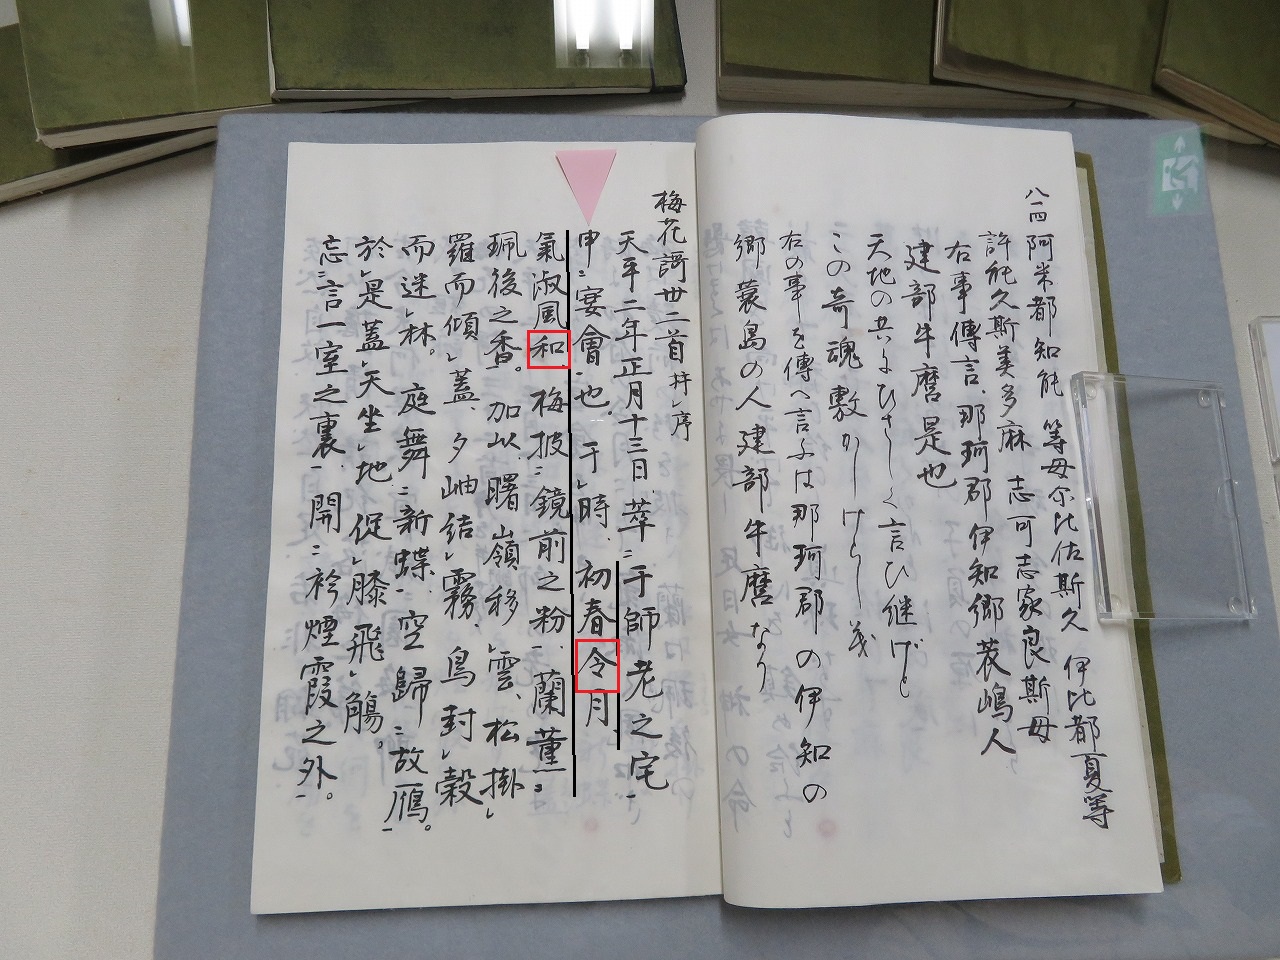 八一四 阿米都知能 等母尓比佐斯久 伊比都夏等
許能久斯美多麻 志可志家良斯母
右事傳言、那珂郡伊知郷蓑嶋人
建部牛麿是也
天地の共にひさしく言ひ継げと
この奇魂敷かしけらし義
右の事を傳へ言ふは那珂郡の伊知の
郷蓑島の人建部牛麿なり
梅花謌卅二首 并レ序
天平二年正月十三日、萃二于師老之宅一
申二宴會一也。于レ時、初春令月、
氣淑風和、梅披二鏡前之粉一、蘭薫二
珮後之香一。加以曙嶺移レ雲、松掛レ
羅而傾レ蓋、夕岫結レ霧、鳥封レ縠
而迷レ林。庭舞二新蝶一、空歸二故鴈一。
於レ是蓋レ天坐レ地 促レ膝飛レ觴。
忘二言一室之裏一、開二衿煙霞之外一。